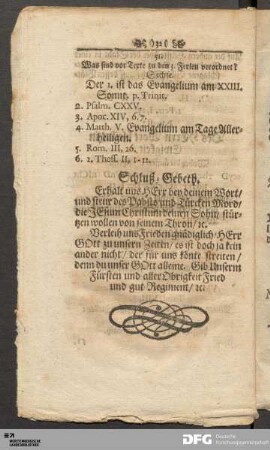 31.
Was sind vor Texte zu den 3. Ferien verordnet?
Sechse.
Der 1. ist das Evangelium am XXIII.
Sonnt. p. Trinit.
2. Psalm. CXXV.
3. Apoc. XIV, 6. 7.
4. Matth. V. Evangelium am Tage Aller-
heiligen.
5. Rom. III, 26.
6. 2. Thess. II, 1-12.
Schluß-Gebeth.
Erhalt uns HErr bey deinem Wort/
und steur des Pabsts und Türcken Mord/
die JEsum Christum deinen Sohn/ stür-
tzen wollen von seinem Thron/ ꝛc.
Verleih uns Frieden gnädiglich/ HErr
GOtt zu unsern Zeiten/ es ist doch ja kein
ander nicht/ der für uns könte streiten/
denn du unser GOtt alleine. Gib Unserm
Fürsten und aller Obrigkeit Fried
und gut Regiment/ ꝛc.
DFG
Deutsche
Forschungsgemeinschaft